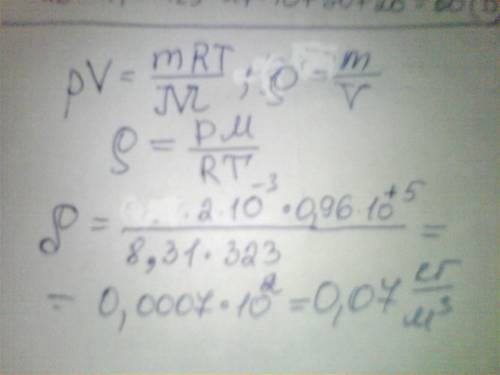 pV = mRT/M ; ρ = m/V
ρ = pM/RT
ρ = 2·10⁻³·0,96·10⁺⁵ / 8,31·323 =
= 0,0007·10² = 0,07 кг/м³